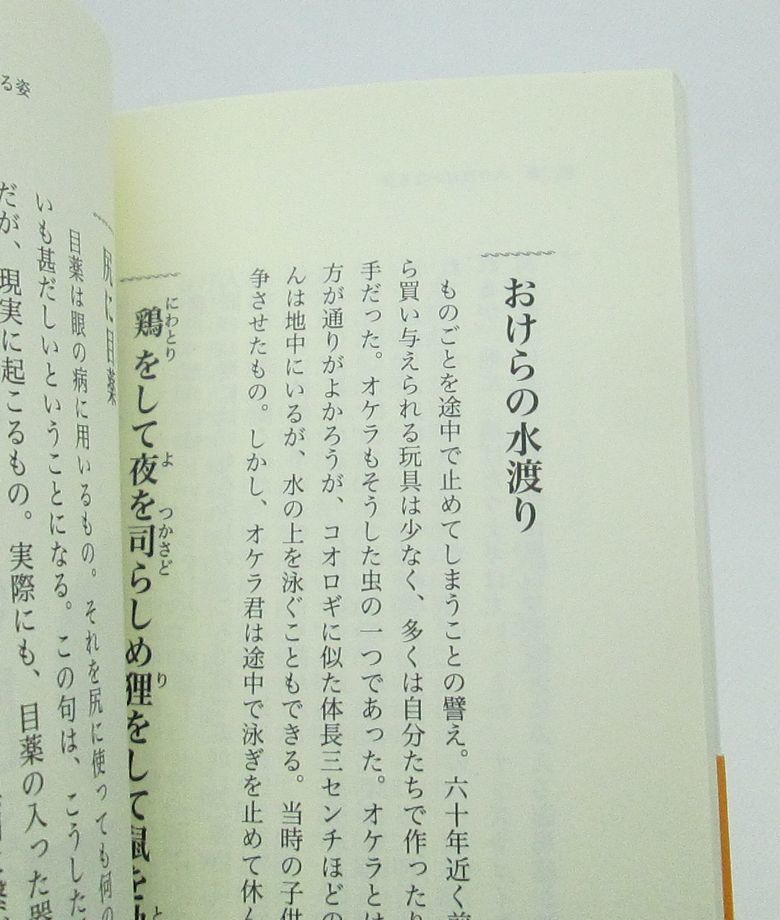 おけらの水渡り
ものごとを途中で止めてしまうことの譬え。六十年近く前
ら買い与えられる玩具は少なく、多くは自分たちで作ったり
手だった。オケラもそうした虫の一つであった。オケラとは
方が通りがよかろうが、コオロギに似た体長三センチほどの
んは地中にいるが、水の上を泳ぐこともできる。当時の子供
争させたもの。しかし、オケラ君は途中で泳ぎを止めて休ん
にわとり よ つかさど り と
鶏をして夜を司らしめ狸をして鼠を
る姿
尻に目薬
目薬は眼の病に用いるもの。それを尻に使っても何の
いも甚だしいということになる。この句は、こうした
だが、現実に起こるもの。実際にも、目薬の入った器